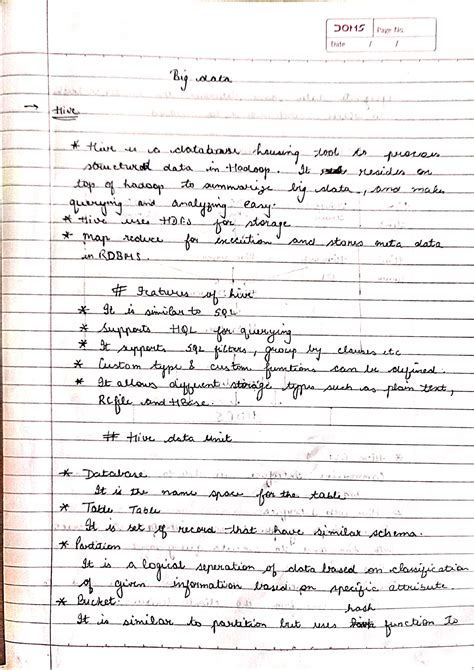 DOMS Page No.
Date / /
Big data
→ Hive
* Hive is a database housing tool to process
structured data in Hadoop. It resides on
top of hadoop to summarize big data, and make
querying and analyzing easy.
* Hive uses HDFS for storage
* Map reduce for execution and stores meta data
in RDBMS.
# Features of hive
* It is similar to SQL
* Supports HQL for querying
* It supports SQL filters, group by clauses etc
* Custom type & custom functions can be defined.
* It allows different storage types such as plain text,
RC file and HBase.
# Hive data unit
* Database
It is the name space for the table
* Table Table
It is set of record that have similar schema.
* Partition
It is a logical seperation of data based on classification
of given information based on specific attribute.
* Bucket:
hash
It is similar to partition but uses function to